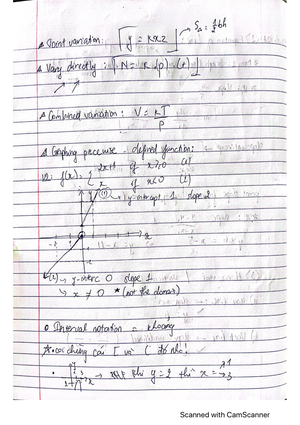 Joint variation: y = kxz → S△ = ½bh
Vary directly: N = k (p) · (t)
Combined variation: V = kT / P
Graphing piecewise - defined function:
f(x) = { 2x+1 if x ≥ 0 (1)
x if x < 0 (2)
(1) → y-intercept 1, slope 2
(2) → y-interc 0 slope 1
→ x ≠ 0 * (not the domain)
Interval notation = khoảng
coi chừng cái [ và ( đó nhé!
khi y = 2 thì x = 1
3
Scanned with CamScanner